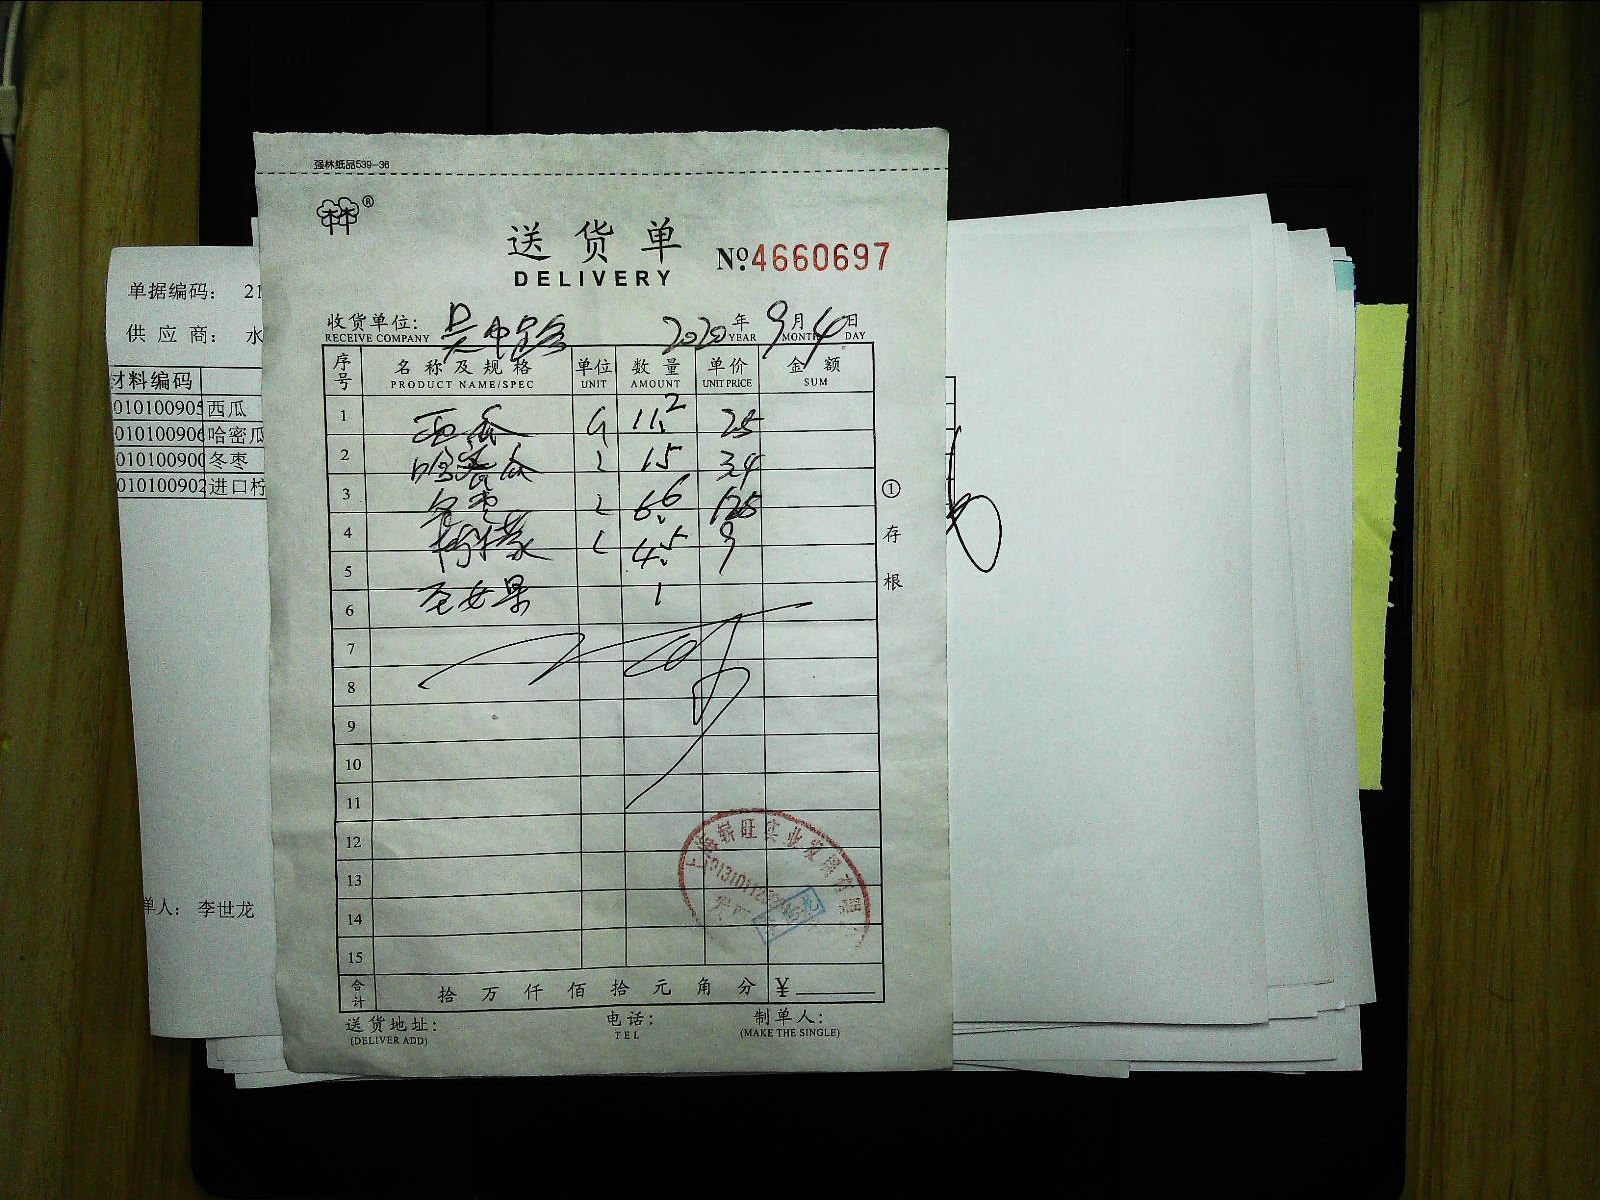 强林纸品539-36
林®
送货单
DELIVERY
№4660697
收货单位: 吴中路 2020年9月4日
RECEIVE COMPANY YEAR MONTH DAY
序号 名称及规格 单位 数量 单价 金额
PRODUCT NAME/SPEC UNIT AMOUNT UNIT PRICE SUM
1 西瓜 11.2 25
2 哈密瓜 15 34
3 冬枣 6.6 125
4 柠檬 4.5 9
5 圣女果 1
6
7
8
9
10
11
12
13
14
15
合计 拾万仟佰拾元角分 ¥
送货地址: 电话: 制单人:
(DELIVER ADD) TEL (MAKE THE SINGLE)
①存根
旺实业发
单据编码: 21
供应商: 水
材料编码
010100905 西瓜
010100906 哈密瓜
010100900 冬枣
010100902 进口柠
单人: 李世龙